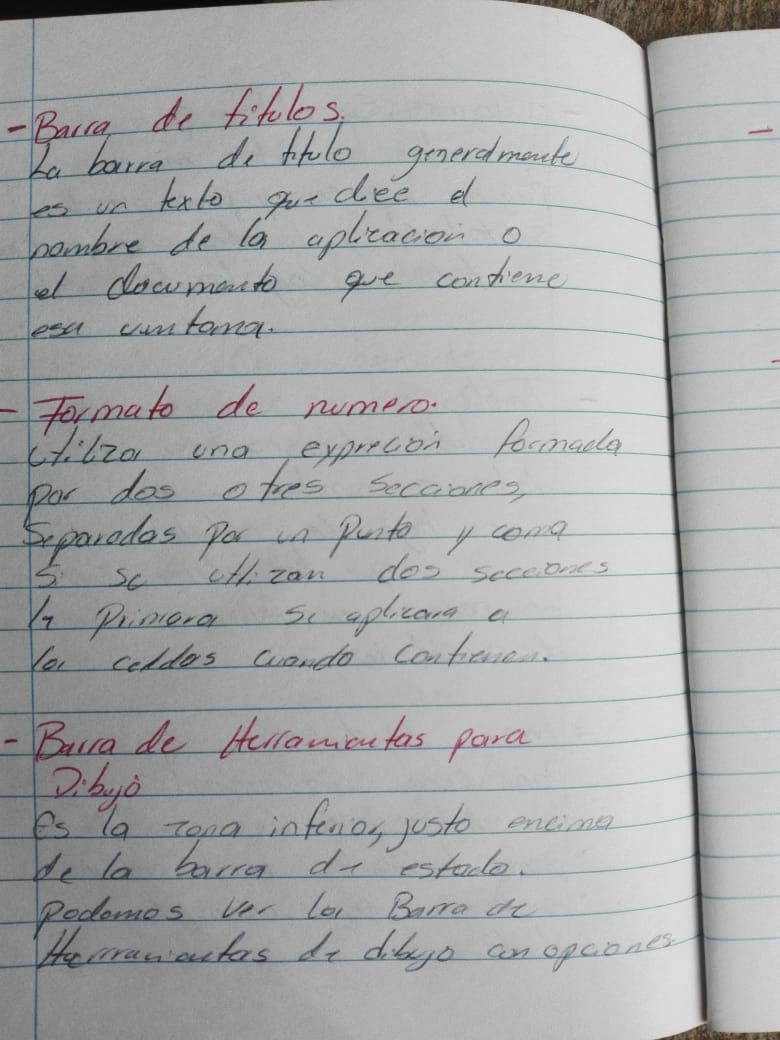 - Barra de titulos.
La barra de titulo generalmente
es un texto que dice el
nombre de la aplicacion o
el documento que contiene
esa ventana.
- Formato de numero.
Utiliza una exprecion formada
por dos o tres secciones,
Separadas por un Punto y coma
Si se utlizan dos secciones
la Primera se aplicara a
las celdas cuando contienen.
- Barra de Herramientas para
Dibujo
Es la zona inferior, justo encima
de la barra de estado.
Podemos ver la Barra de
Herramientas de dibujo con opciones.